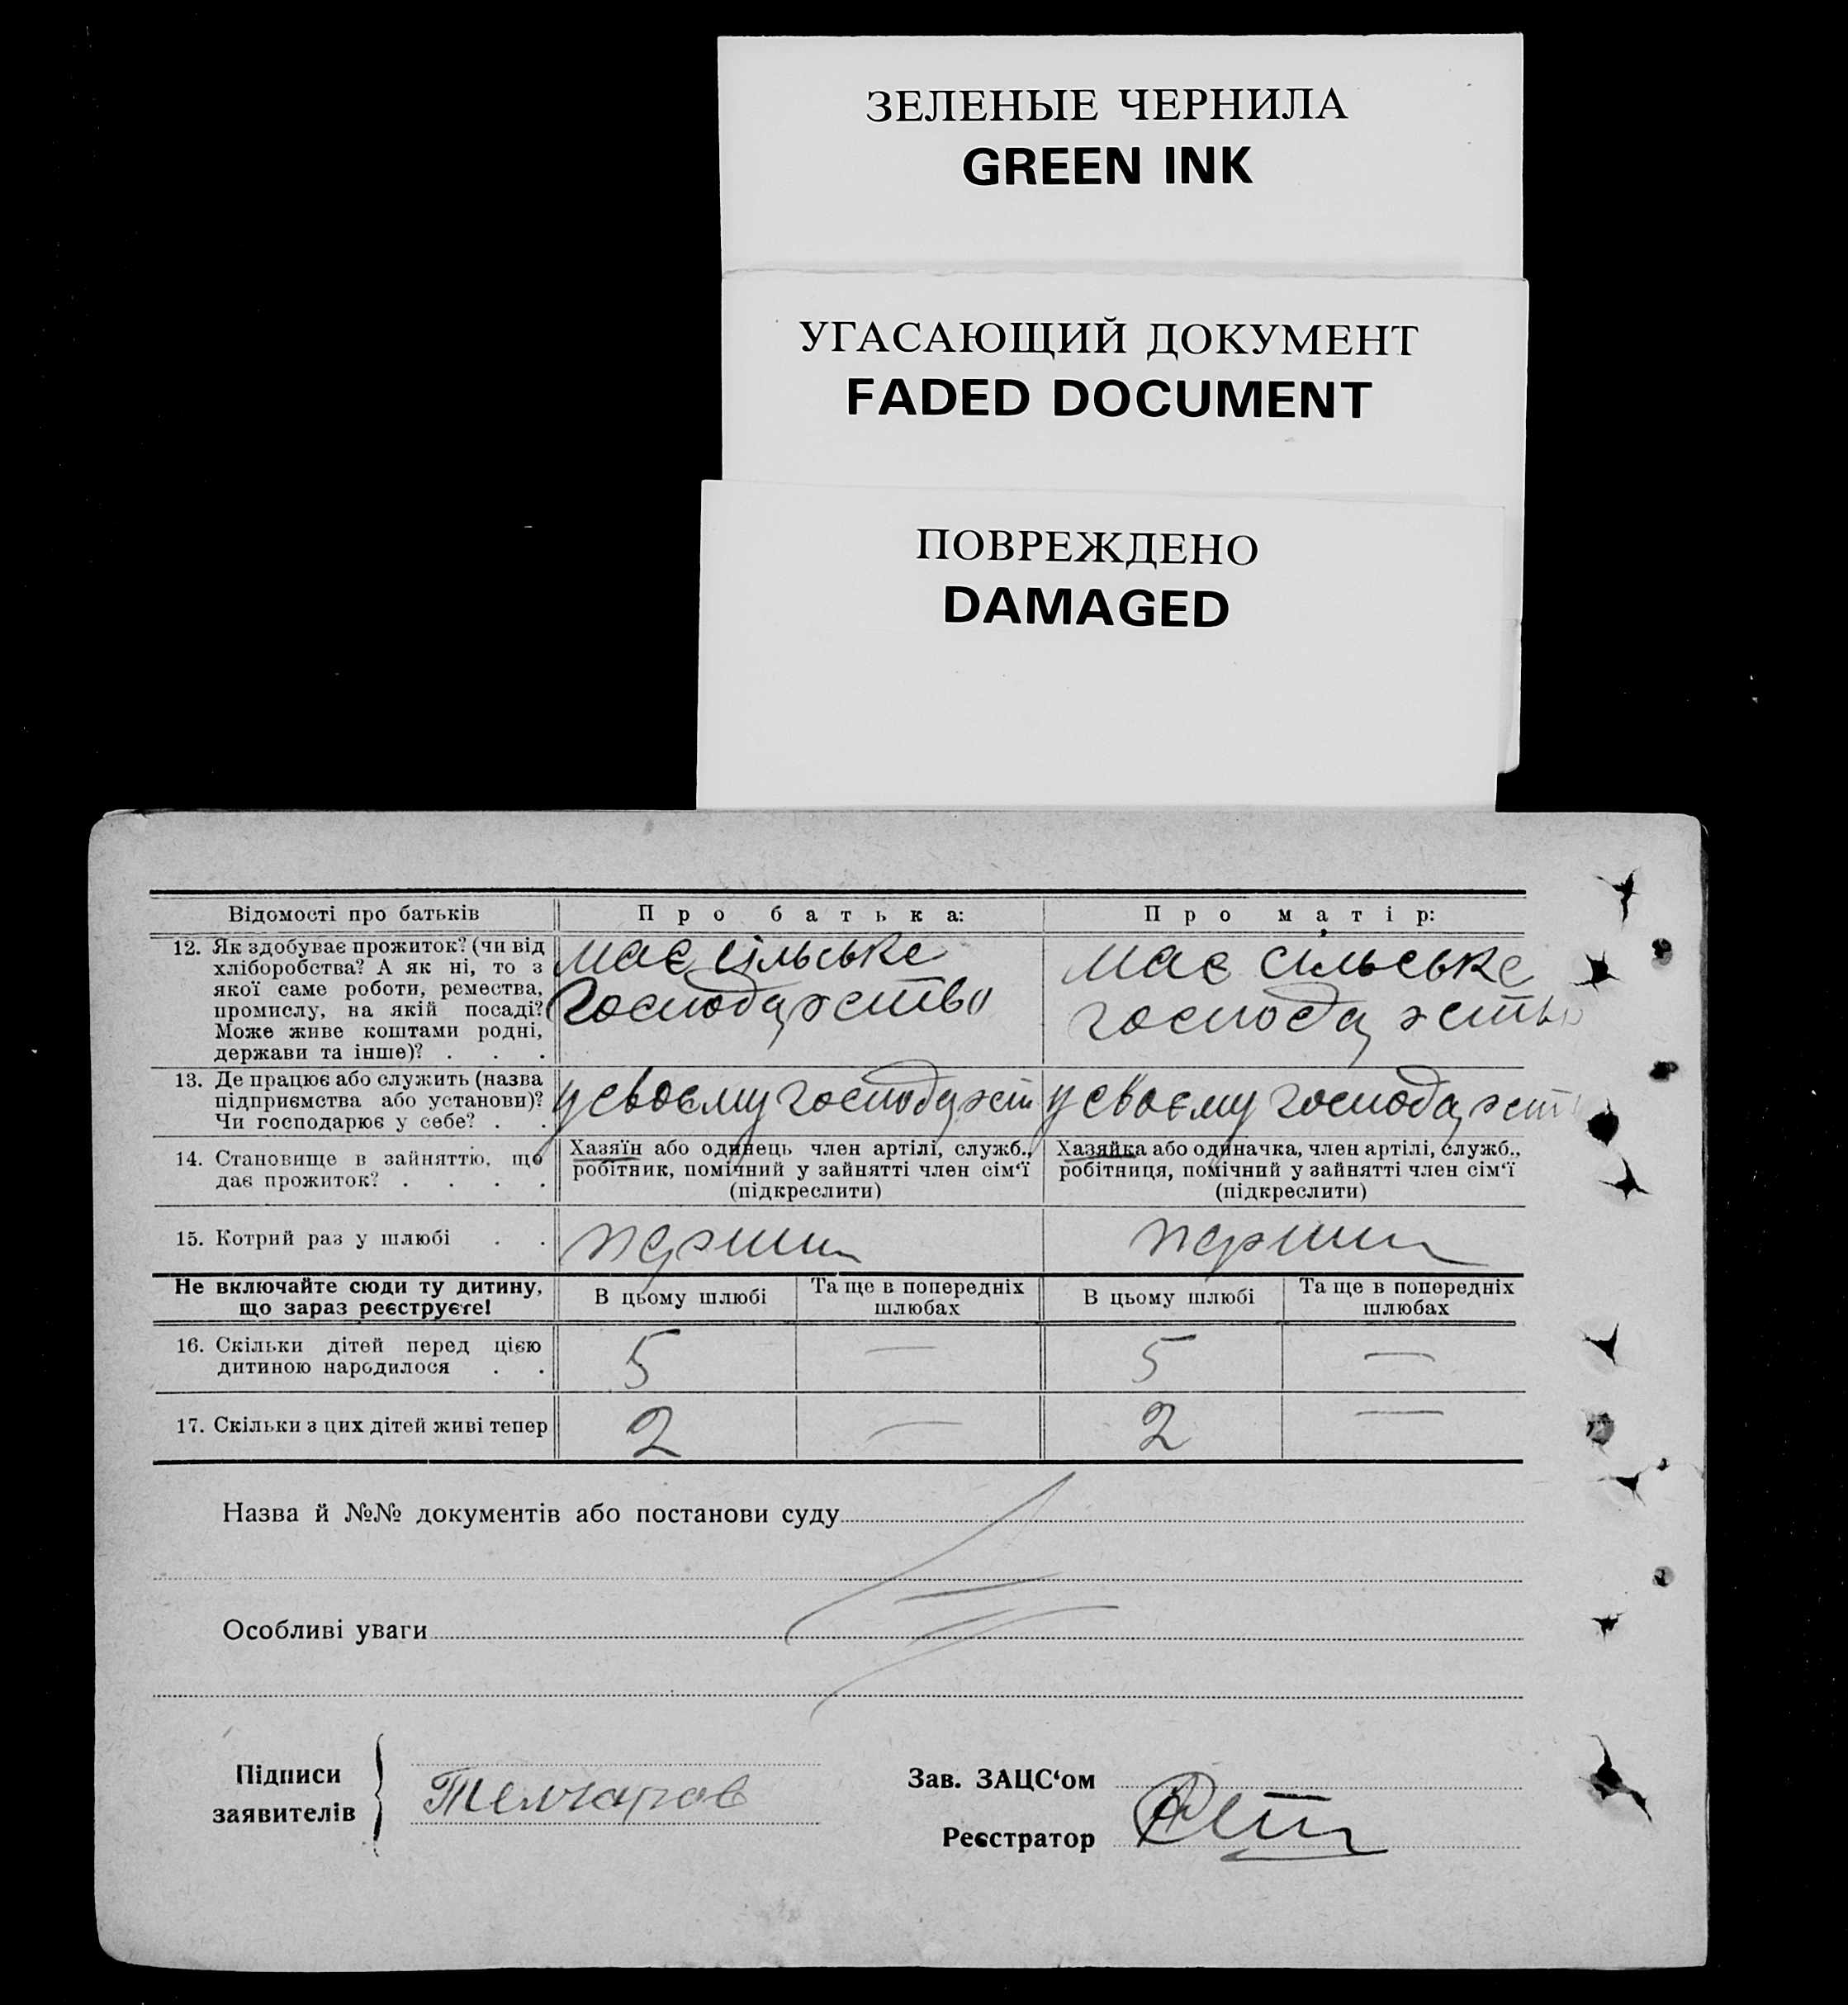 ЗЕЛЕНЫЕ ЧЕРНИЛА
GREEN INK
УГАСАЮЩИЙ ДОКУМЕНТ
FADED DOCUMENT
ПОВРЕЖДЕНО
DAMAGED
Відомості про батьків
Про батька:
Про матір:
12. Як здобуває прожиток? (чи від
хліборобства? А як ні, то з
якої саме роботи, ремества,
промислу, на якій посаді?
Може живе коштами родні,
держави та інше)? . . .
має сільське
господарство
має сильське
господарство
13. Де працює або служить (назва
підприємства або установи)?
Чи господарює у себе? . .
у своєму господарст
у своєму господарст
14. Становище в зайняттю, що
дає прожиток? . . . .
Хазяїн або одинець член артілі, служб.,
робітник, помічний у зайнятті член сім‘ї
(підкреслити)
Хазяйка або одиначка, член артілі, служб.,
робітниця, помічний у зайнятті член сім‘ї
(підкреслити)
15. Котрий раз у шлюбі . .
перший
перший
Не включайте сюди ту дитину,
що зараз реєструєте!
В цьому шлюбі
Та ще в попередніх
шлюбах
В цьому шлюбі
Та ще в попередніх
шлюбах
16. Скільки дітей перед цією
дитиною народилося . .
5
—
5
—
17. Скільки з цих дітей живі тепер
2
—
2
—
Назва й №№ документів або постанови суду
Особливі уваги
Підписи
заявителів
Зав. ЗАЦС‘ом
Реєстратор